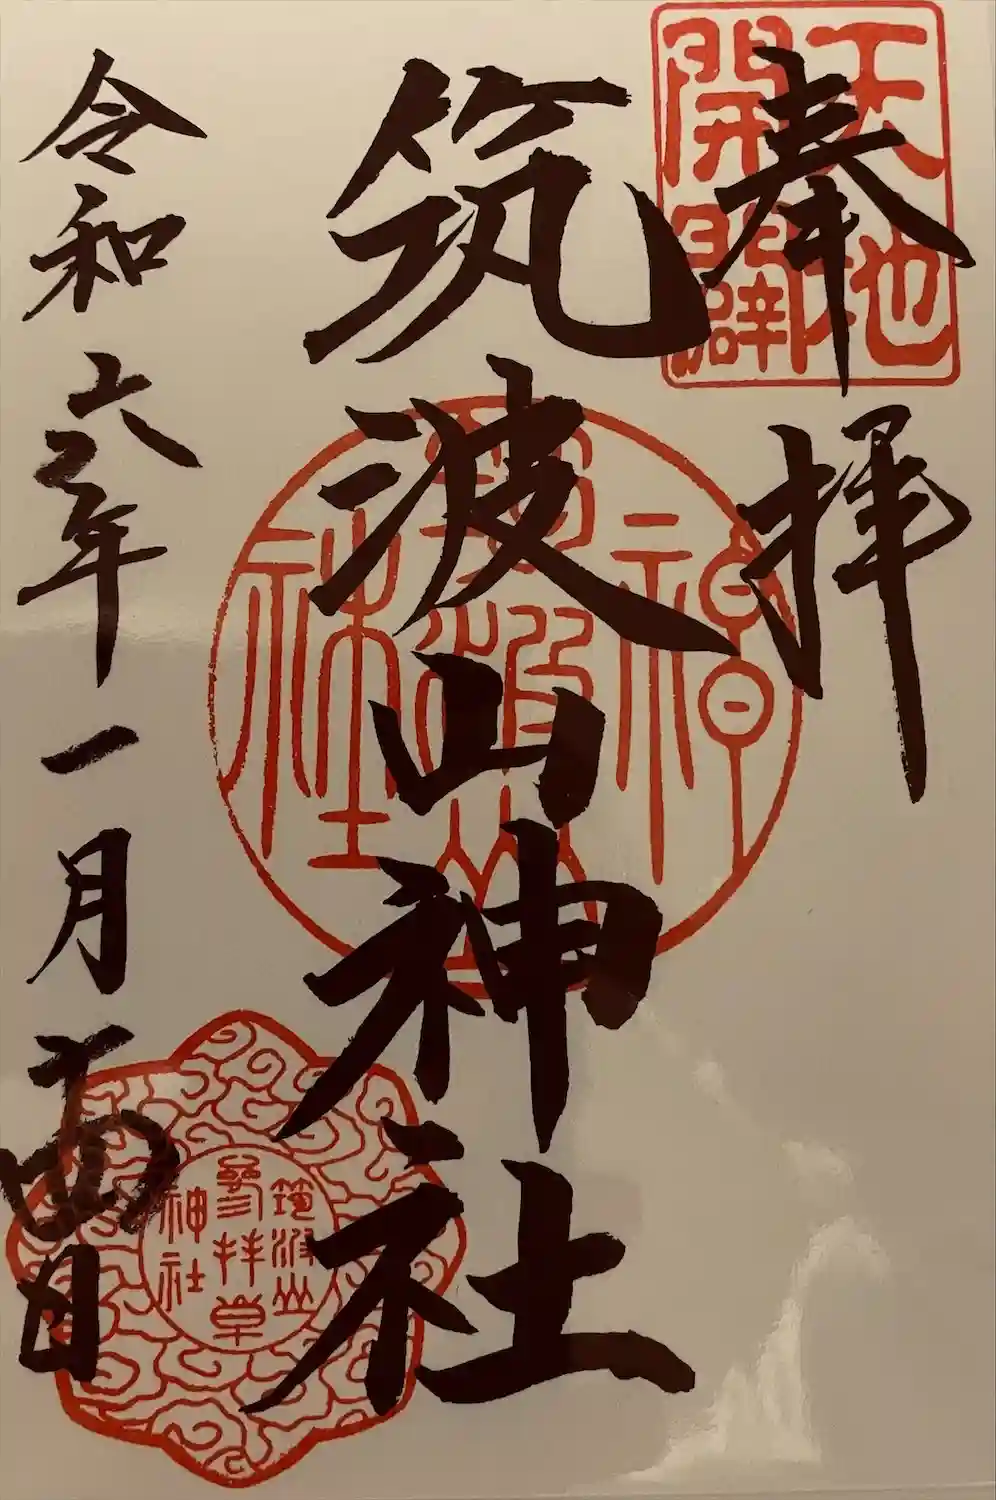 奉拝
天地
開闢
筑波山神社
筑波山
神社
令和六年一月
日
筑波山
参拝章
神社